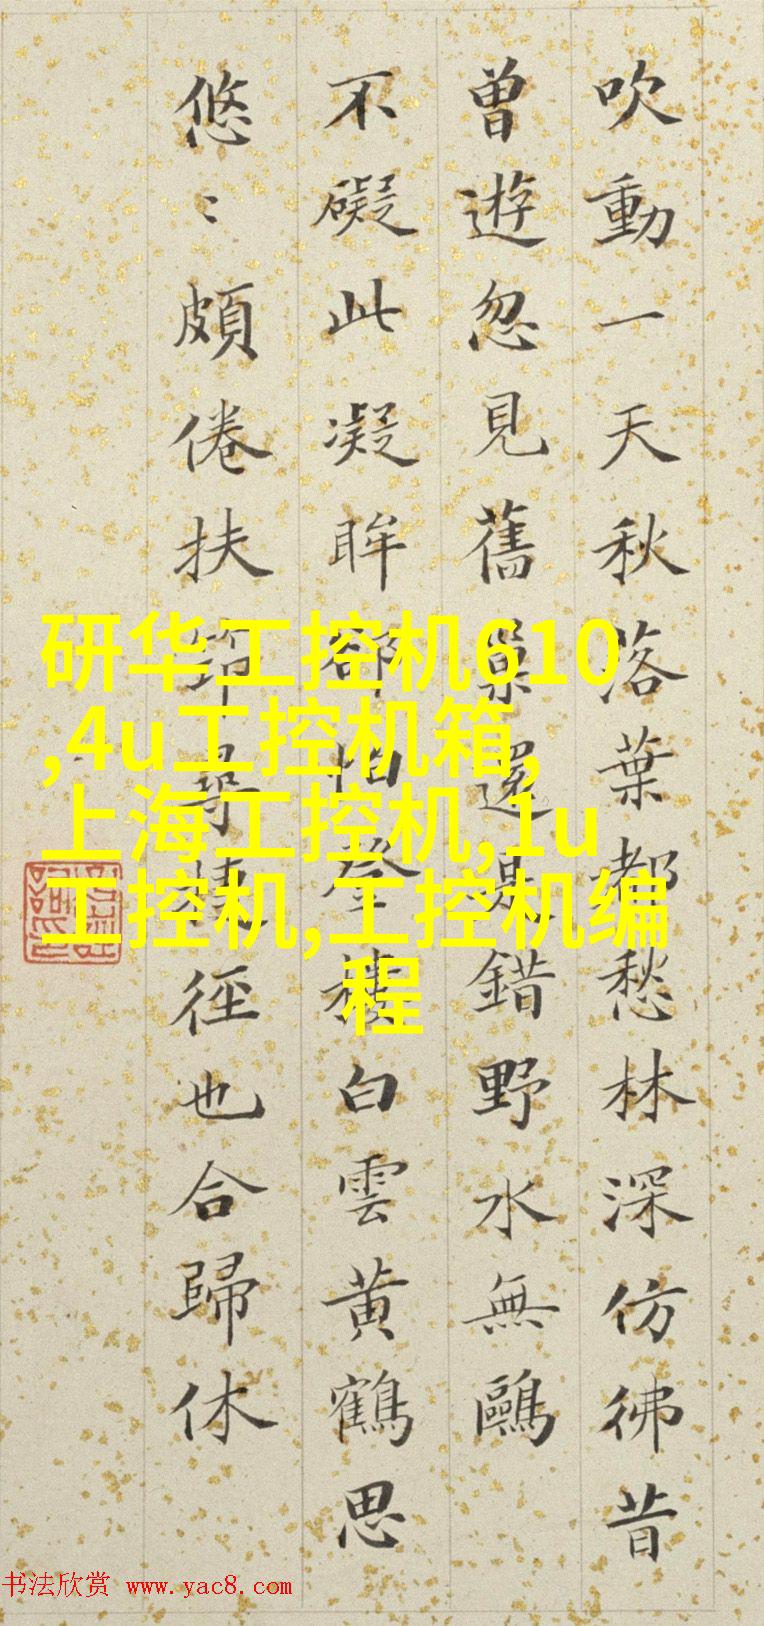 吹動一天秋落葉都愁林深仿彿昔
曾遊忽見舊巢還是錯野水無鷗
不礙此凝眸卻怕登樓白雲黃鶴思
悠〻頗倦扶筇尋捷徑也合歸休
研华工控机610
,4u工控机箱,
上海工控机,1u
工控机,工控机编
程
书法欣赏 www.yac8.com